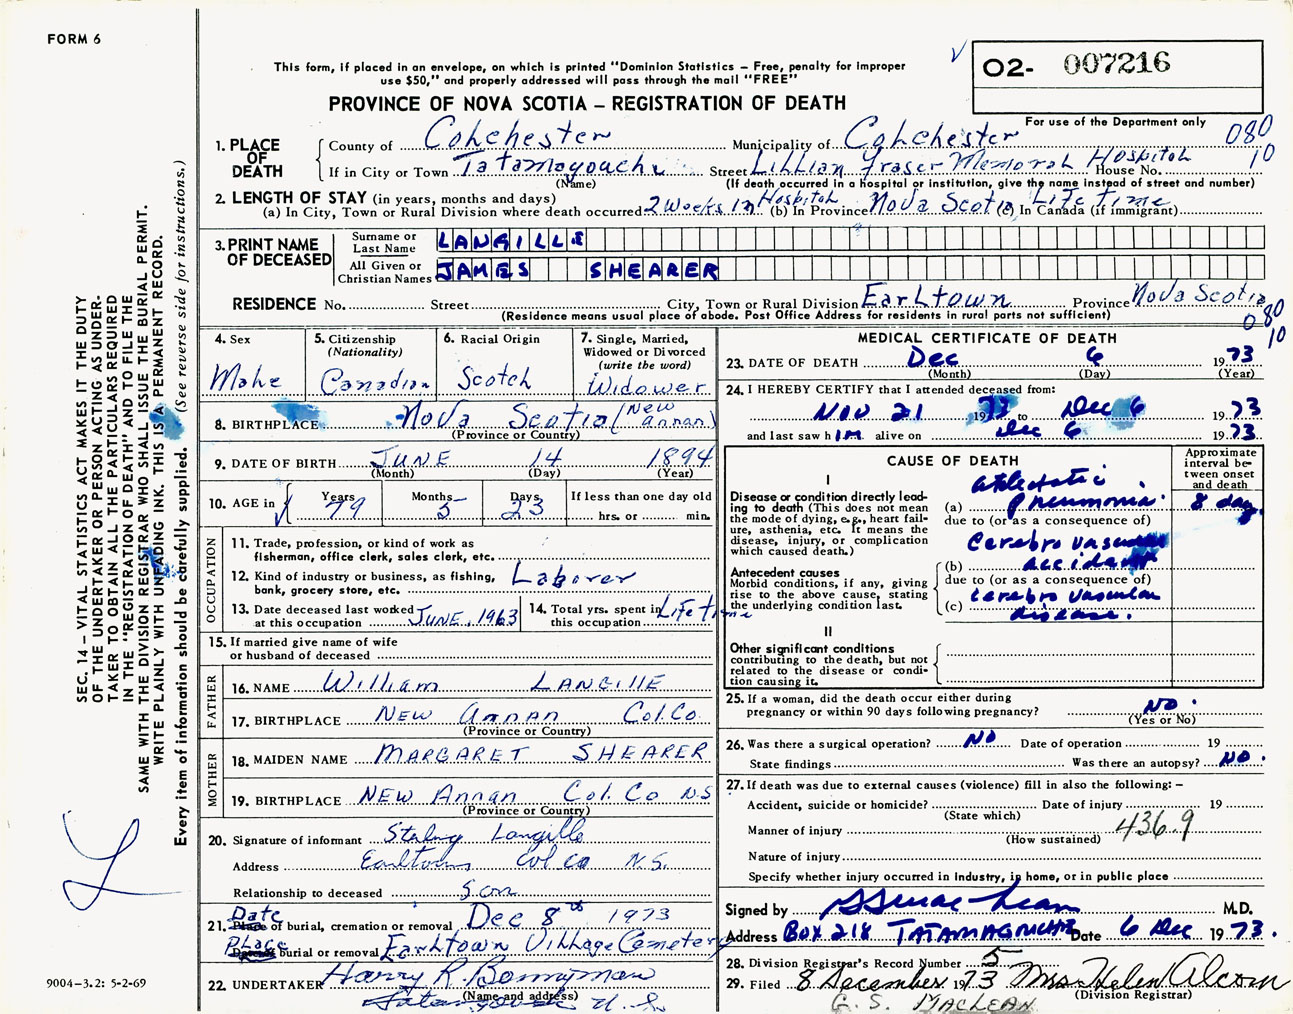 FORM 6
SEC. 14 – VITAL STATISTICS ACT MAKES IT THE DUTY
OF THE UNDERTAKER OR PERSON ACTING AS UNDER-
TAKER TO OBTAIN ALL THE PARTICULARS REQUIRED
IN THE "REGISTRATION OF DEATH" AND TO FILE THE
SAME WITH THE DIVISION REGISTRAR WHO SHALL ISSUE THE BURIAL PERMIT.
WRITE PLAINLY WITH UNFADING INK. THIS IS A PERMANENT RECORD.
Every item of information should be carefully supplied. (See reverse side for instructions.)
9004-3.2: 5-2-69
This form, if placed in an envelope, on which is printed "Dominion Statistics – Free, penalty for improper
use $50," and properly addressed will pass through the mail "FREE"
02- 007216
PROVINCE OF NOVA SCOTIA – REGISTRATION OF DEATH
For use of the Department only
080
10
1. PLACE OF DEATH County of Colchester Municipality of Colchester
If in City or Town Tatamagouche Street Lillian Fraser Memorial Hospital House No.
(Name) (If death occurred in a hospital or institution, give the name instead of street and number)
2. LENGTH OF STAY (in years, months and days)
(a) In City, Town or Rural Division where death occurred 2 weeks in Hospital (b) In Province Nova Scotia (c) In Canada (if immigrant) Life time
3. PRINT NAME OF DECEASED Surname or Last Name LANGILLE
All Given or Christian Names JAMES SHEARER
RESIDENCE No. Street City, Town or Rural Division Earltown Province Nova Scotia
(Residence means usual place of abode. Post Office Address for residents in rural parts not sufficient)
080
10
4. Sex Male
5. Citizenship (Nationality) Canadian
6. Racial Origin Scotch
7. Single, Married, Widowed or Divorced (write the word) Widower
8. BIRTHPLACE Nova Scotia (New Annan)
(Province or Country)
9. DATE OF BIRTH JUNE 14 1894
(Month) (Day) (Year)
10. AGE in Years 79 Months 5 Days 23 If less than one day old
hrs. or min.
OCCUPATION
11. Trade, profession, or kind of work as
fisherman, office clerk, sales clerk, etc.
12. Kind of industry or business, as fishing,
bank, grocery store, etc. Laborer
13. Date deceased last worked
at this occupation JUNE, 1963
14. Total yrs. spent in
this occupation Life time
15. If married give name of wife
or husband of deceased
FATHER
16. NAME William LANGILLE
17. BIRTHPLACE NEW Annan Col. Co.
(Province or Country)
MOTHER
18. MAIDEN NAME MARGARET SHEARER
19. BIRTHPLACE NEW Annan Col. Co N.S
(Province or Country)
20. Signature of informant Langille
Address Earltown Col Co N.S.
Relationship to deceased Son
21. Date
Place of burial, cremation or removal Dec 8th 1973
Place
burial or removal Earltown Village Cemetery
22. UNDERTAKER Harry R. Bonnyman
(Name and address)
Tatamagouche N.S.
MEDICAL CERTIFICATE OF DEATH
23. DATE OF DEATH Dec 6 1973
(Month) (Day) (Year)
24. I HEREBY CERTIFY that I attended deceased from:
Nov 21 1973 to Dec 6 1973
and last saw him alive on Dec 6 1973
CAUSE OF DEATH
Approximate interval between onset and death
I
Disease or condition directly lead-
ing to death (This does not mean
the mode of dying, e.g., heart fail-
ure, asthenia, etc. It means the
disease, injury, or complication
which caused death.)
(a) Pneumonia. 8 day
due to (or as a consequence of)
Antecedent causes
Morbid conditions, if any, giving
rise to the above cause, stating
the underlying condition last.
(b) Cerebro vascular accident
due to (or as a consequence of)
(c) Cerebro vascular disease.
II
Other significant conditions
contributing to the death, but not
related to the disease or condi-
tion causing it.
25. If a woman, did the death occur either during
pregnancy or within 90 days following pregnancy? NO.
(Yes or No)
26. Was there a surgical operation? NO Date of operation 19
State findings Was there an autopsy? NO.
27. If death was due to external causes (violence) fill in also the following: –
Accident, suicide or homicide? Date of injury 19
(State which)
Manner of injury 436.9
(How sustained)
Nature of injury
Specify whether injury occurred in industry, in home, or in public place
Signed by M.D.
Address BOX 218 TATAMAGOUCHE Date 6 Dec 1973.
28. Division Registrar's Record Number 5
29. Filed 8 December 1973 Mrs Helen Alcorn
(Division Registrar)
G. S. MACLEAN